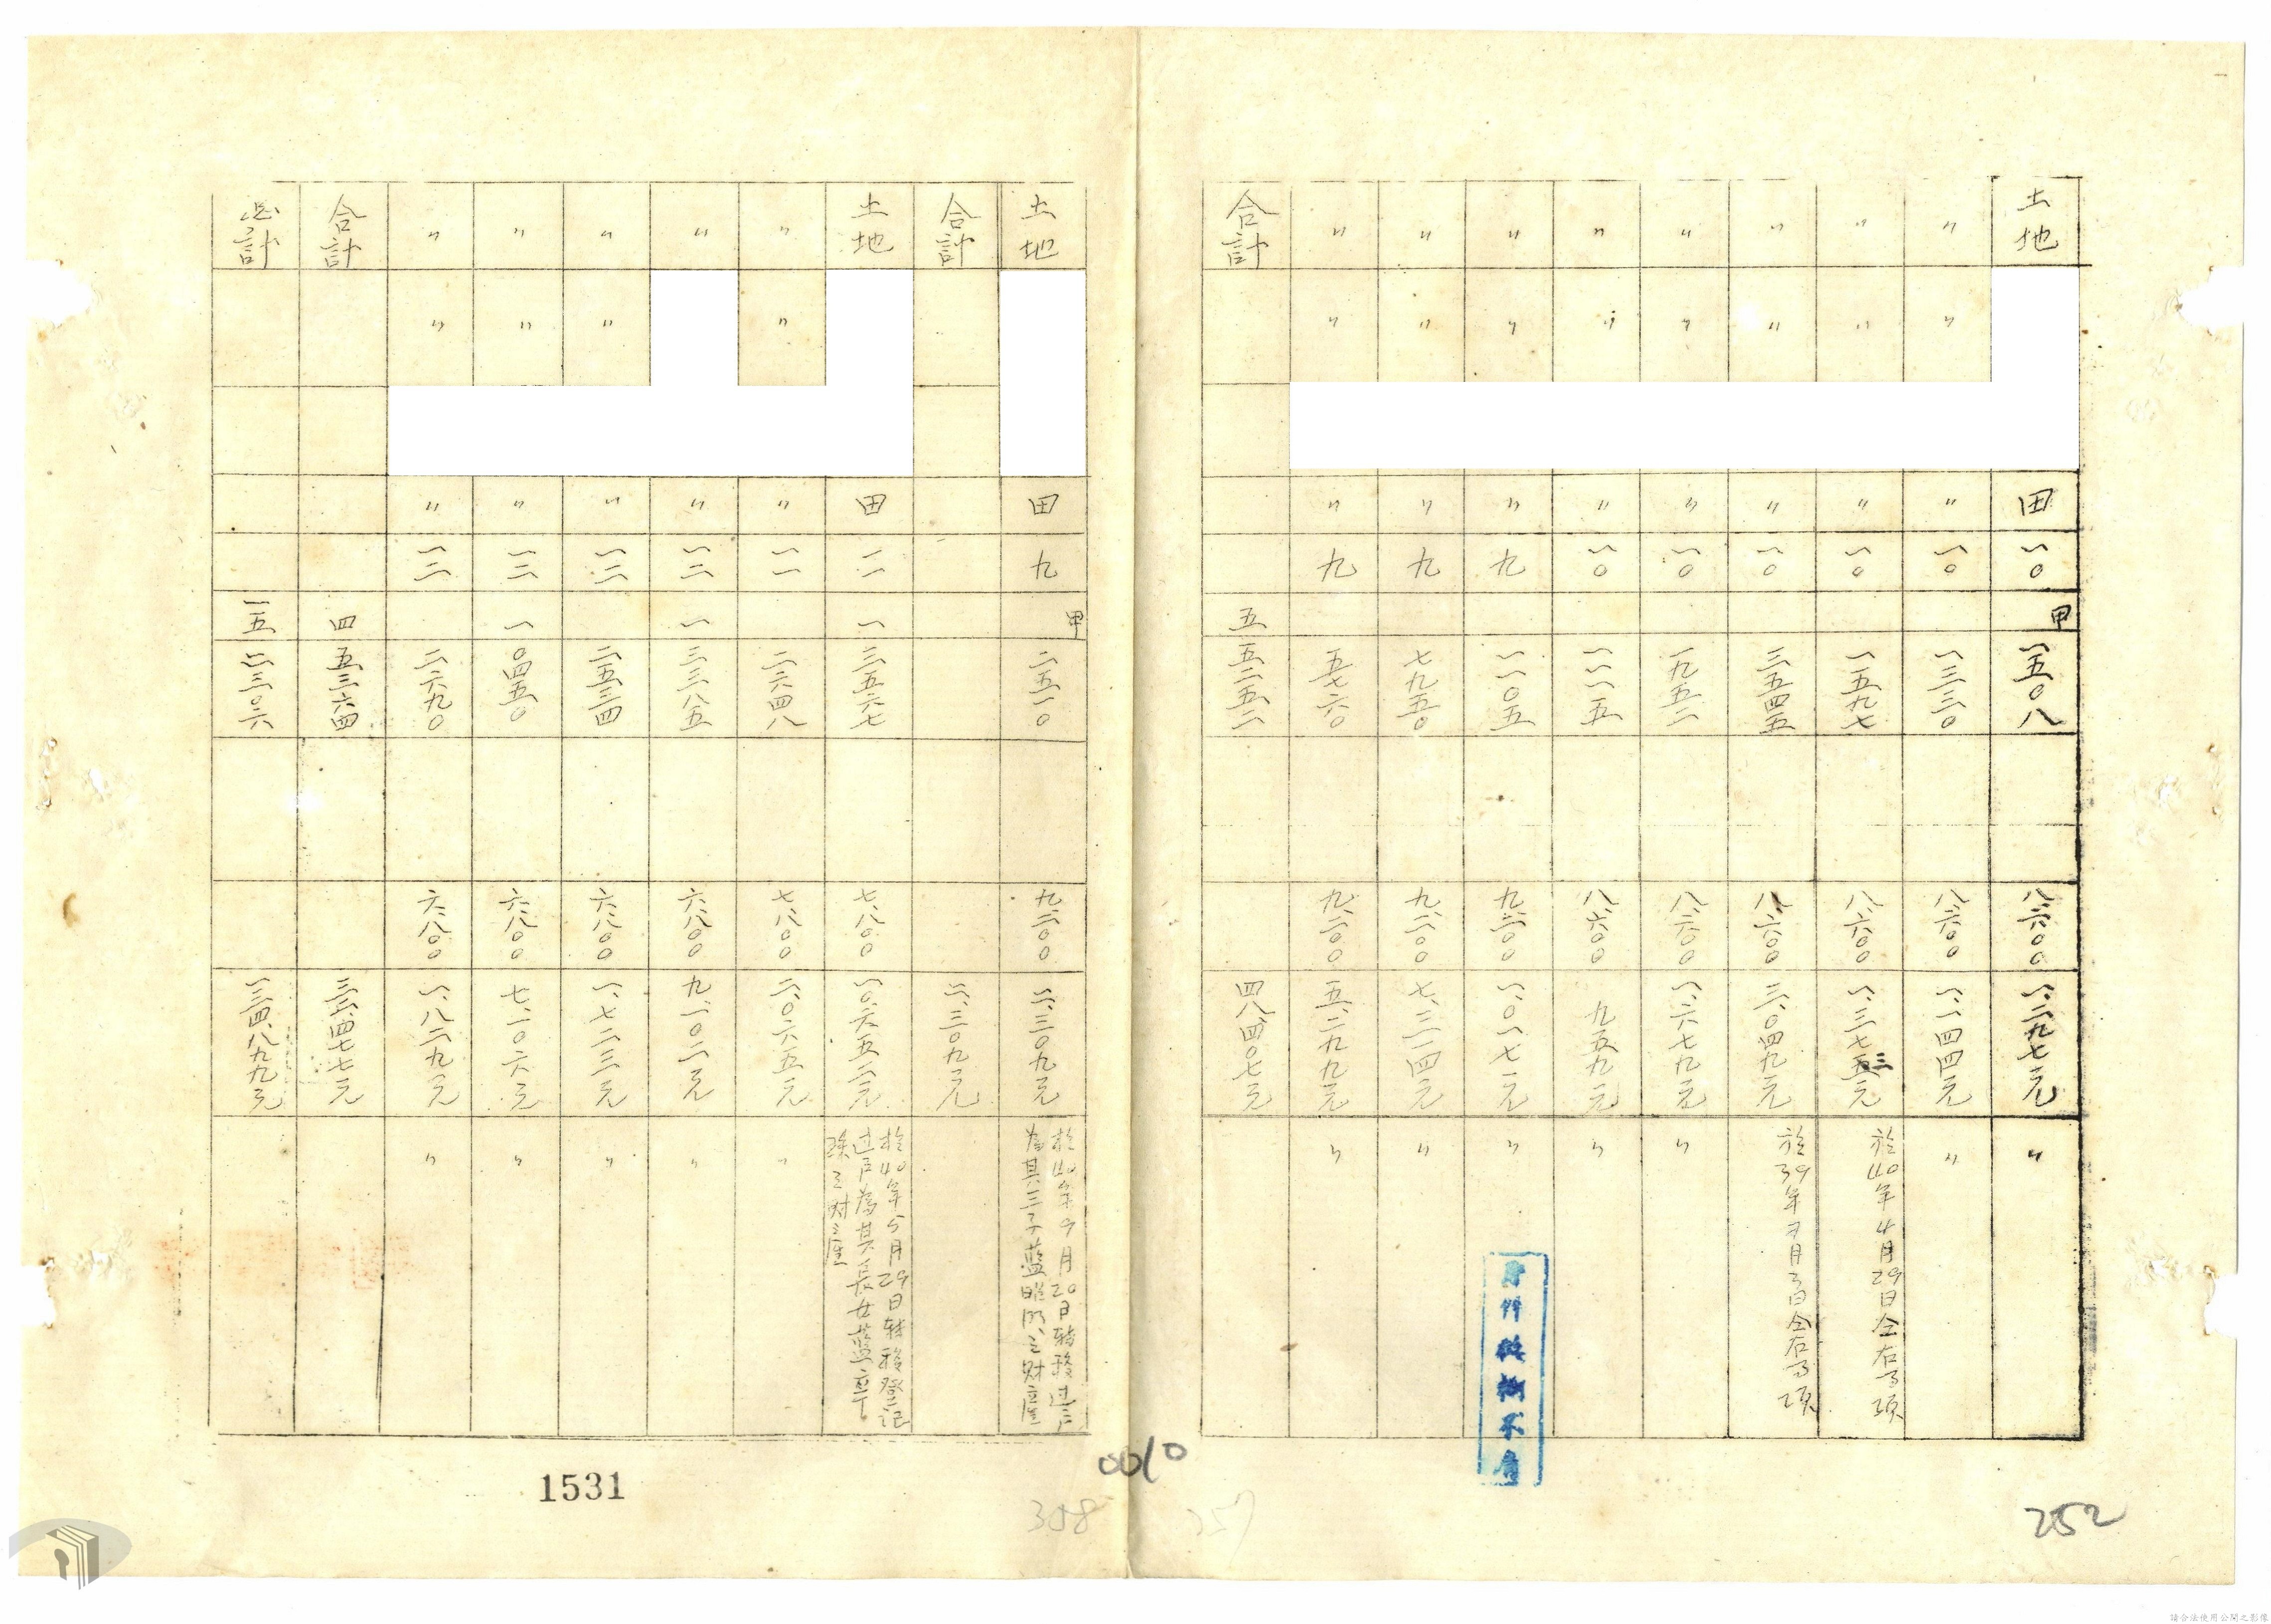 土地 田 一〇 甲 一五〇八 八六〇〇 一、二九七元 〃
〃 〃 〃 一〇 一三三〇 八六〇〇 一、一四四元 〃
〃 〃 〃 一〇 一五九七 八六〇〇 一、三七三元 於40年4月29日仝右事項
〃 〃 〃 一〇 三五四五 八六〇〇 三、〇四九元 於39年 月3日仝右事項
〃 〃 〃 一〇 一九五二 八六〇〇 一、六七九元 〃
〃 〃 〃 一〇 一一一五 八六〇〇 九五九元 〃
〃 〃 〃 九 一一〇五 九二〇〇 一、〇一七元 〃
〃 〃 〃 九 七九五〇 九二〇〇 七、三一四元 〃
〃 〃 〃 九 五七六〇 九二〇〇 五、二九九元 〃
合計 五 五二五二 四八、四〇七元
252
257
土地 田 九 甲 二五一〇 九二〇〇 二、三〇九元 於40年9月20日轉移過戶為其三子藍昭明之財產
合計 二、三〇九元
土地 田 一一 一 三五六七 七八〇〇 一〇、六五二元 於40年5月29日轉移登記過戶為其長女藍 之財產
〃 〃 〃 一一 二六四八 七八〇〇 二、〇六五元 〃
〃 〃 一二 一 三三八五 六八〇〇 九、一〇二元 〃
〃 〃 〃 一二 二五三四 六八〇〇 一、七二三元 〃
〃 〃 〃 一二 一 〇四五〇 六八〇〇 七、一〇六元 〃
〃 〃 〃 一二 二六九〇 六八〇〇 一、八二九元 〃
合計 四 五三六四 三二、四七七元
总計 一五 二三〇六 一三四、八九九元
0010
308
1531
請合法使用公開之影像